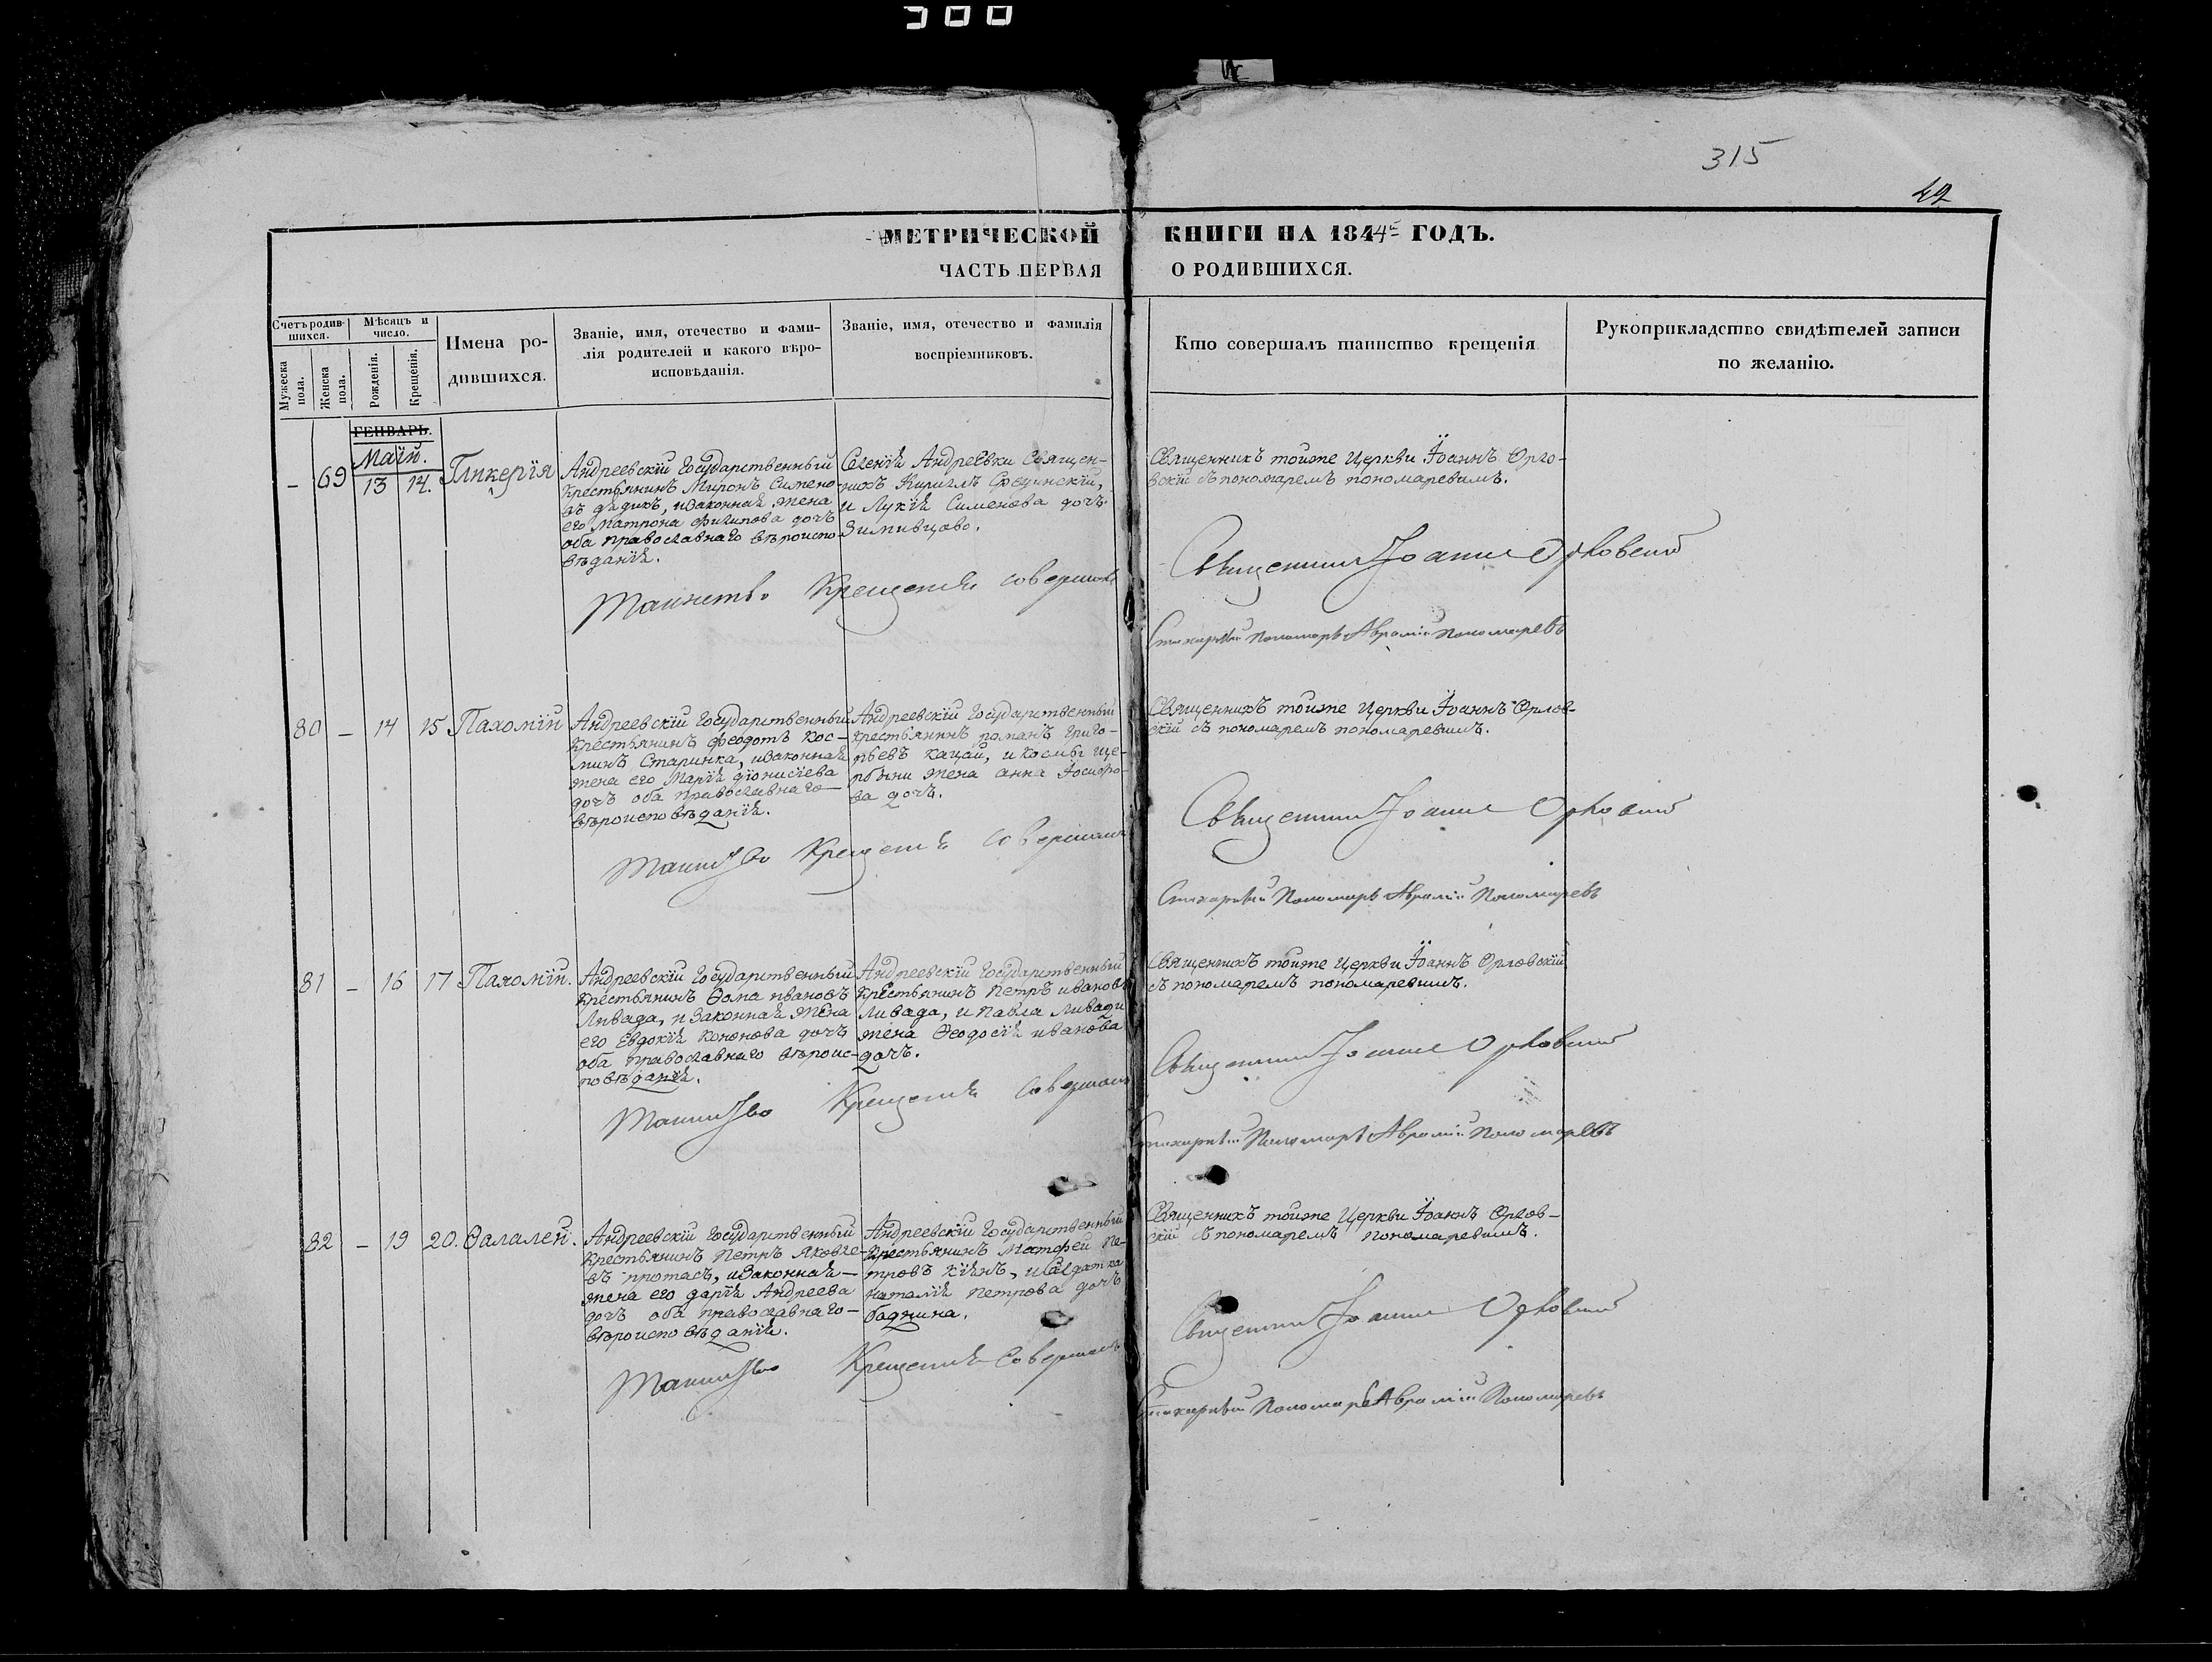 300
315
42
МЕТРИЧЕСКОЙ КНИГИ НА 1844 ГОДЪ.
ЧАСТЬ ПЕРВАЯ О РОДИВШИХСЯ.
Счетъ родив-
шихся.
Мужеска
пола.
Женска
пола.
Мѣсяцъ и
число.
Рожденія.
Крещенія.
Имена ро-
дившихся.
Званіе, имя, отечество и фами-
лія родителей и какого вѣро-
исповѣданія.
Званіе, имя, отечество и фамилія
воспріемниковъ.
Кто совершалъ таинство крещенія
Рукоприкладство свидѣтелей записи
по желанію.
ГЕНВАРЬ.
Маїй.
– 69 13 14. Гликерїя
Андреевскїй Государственный
крестьянинъ Миронъ Симено
въ дядикъ, и законная жена
его Матрона Филипова дочь
оба православнаго вѣроиспо
вѣданїя.
Селенїя Андреевки Священ-
никъ Кириллъ Сѣцинскїй,
и Лукїя Сименова дочь
Зимивцово.
Священникъ тоиже Церкви Іоаннъ Орло-
вскїй съ пономаремъ пономаревимъ.
Таинство Крещенія совершалъ
Священникъ Іоаннъ Орловскій
Стихарный Пономарь Аврамій Пономаревъ
80 – 14 15 Пахомїй
Андреевскїй Государственный
крестьянинъ Феодотъ Кос-
минъ Старинка, и законная
жена его Марїя Дїонисїева
дочь оба православнаго
вѣроисповѣданїя.
Андреевскїй Государственный
крестьянинъ романъ Григо-
рьевъ кацай, и космы ще-
рбини жена анна Іосифо-
ва дочь.
Священникъ тоиже Церкви Іоаннъ Орлов-
скїй съ пономаремъ пономаревимъ.
Таинство Крещенія совершалъ
Священникъ Іоаннъ Орловскій
Стихарный Пономарь Аврамій Пономаревъ
81 – 16 17 Пахомїй.
Андреевскїй Государственный
крестьянинъ Ѳома ивановъ
Ливада, и Законная жена
его Евдокїя Кононова дочь
оба православнаго вѣроис-
повѣданїя.
Андреевскїй Государственный
крестьянинъ Петръ ивановъ
Ливада, и Павла Ливади
жена Ѳеодосїя иванова
дочь.
Священникъ тоиже Церкви Іоаннъ Орловскїй
съ пономаремъ пономаревимъ.
Таинство Крещенія совершалъ
Священникъ Іоаннъ Орловскій
Стихарный Пономарь Аврамій Пономаревъ
82 – 19 20. Ѳалалей.
Андреевскїй Государственный
крестьянинъ Петръ Яковле-
въ протасъ, и законная
жена его дарїя Андреева
дочь оба православнаго
вѣроисповѣданїя.
Андреевскїй Государственный
крестьянинъ Матфей Пе-
тровъ кїянъ, и Салдатка
наталїя Петрова дочь
баджина.
Священникъ тоиже Церкви Іоаннъ Орлов-
скїй съ пономаремъ пономаревимъ.
Таинство Крещенія совершалъ
Священникъ Іоаннъ Орловскій
Стихарный Пономарь Аврамій Пономаревъ